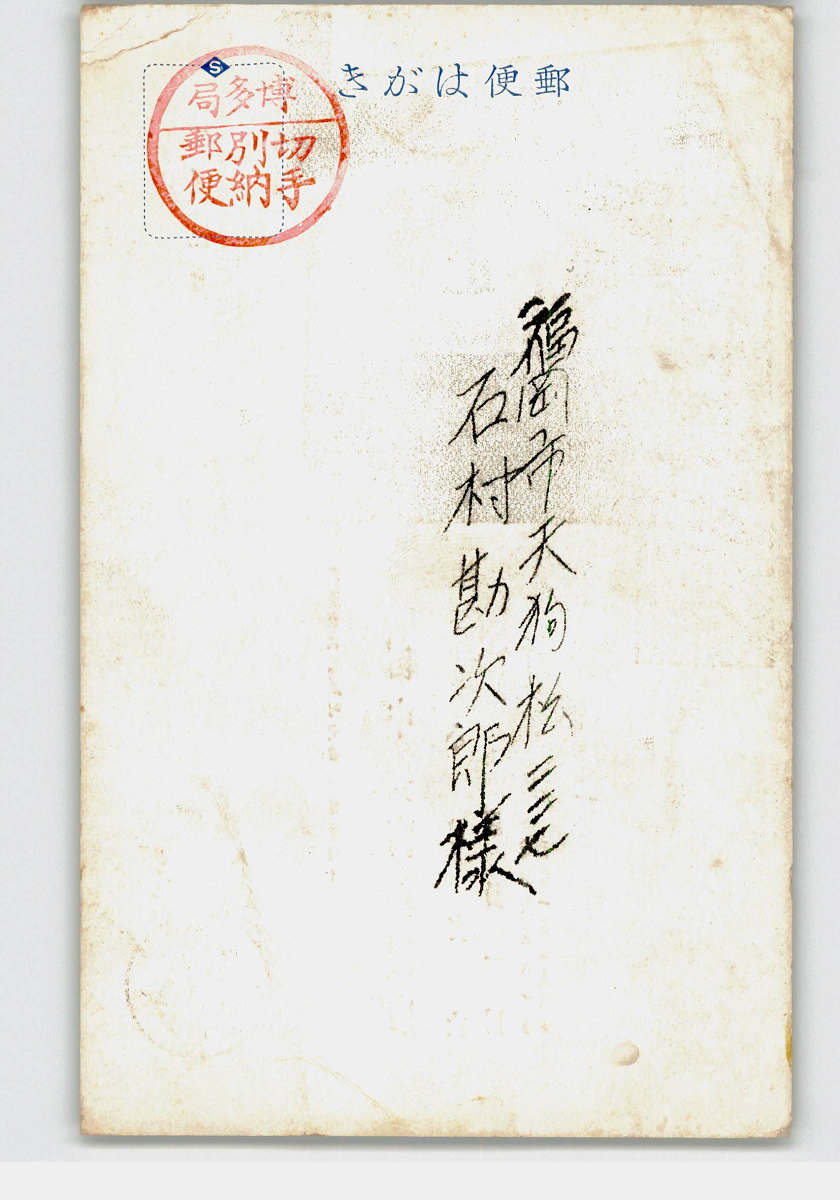 郵便はがき
S
博多局
切手
別納
郵便
福岡市天狗松二三七
石村勘次郎様